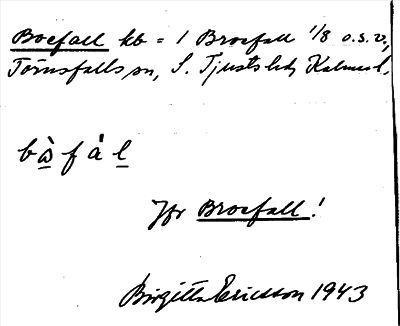 Boefall kb = 1 Broefall 1/8 o.s.v.,
Törnsfalls sn, S. Tjusts hd, Kalmar l.
bò̲fàl̲
Jfr Broefall!
Birgitta Ericsson 1943